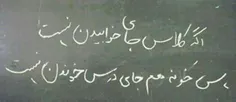 اگه کلاس جای خوابیدن نیست
پس خونه هم جای درس خوندن نیست